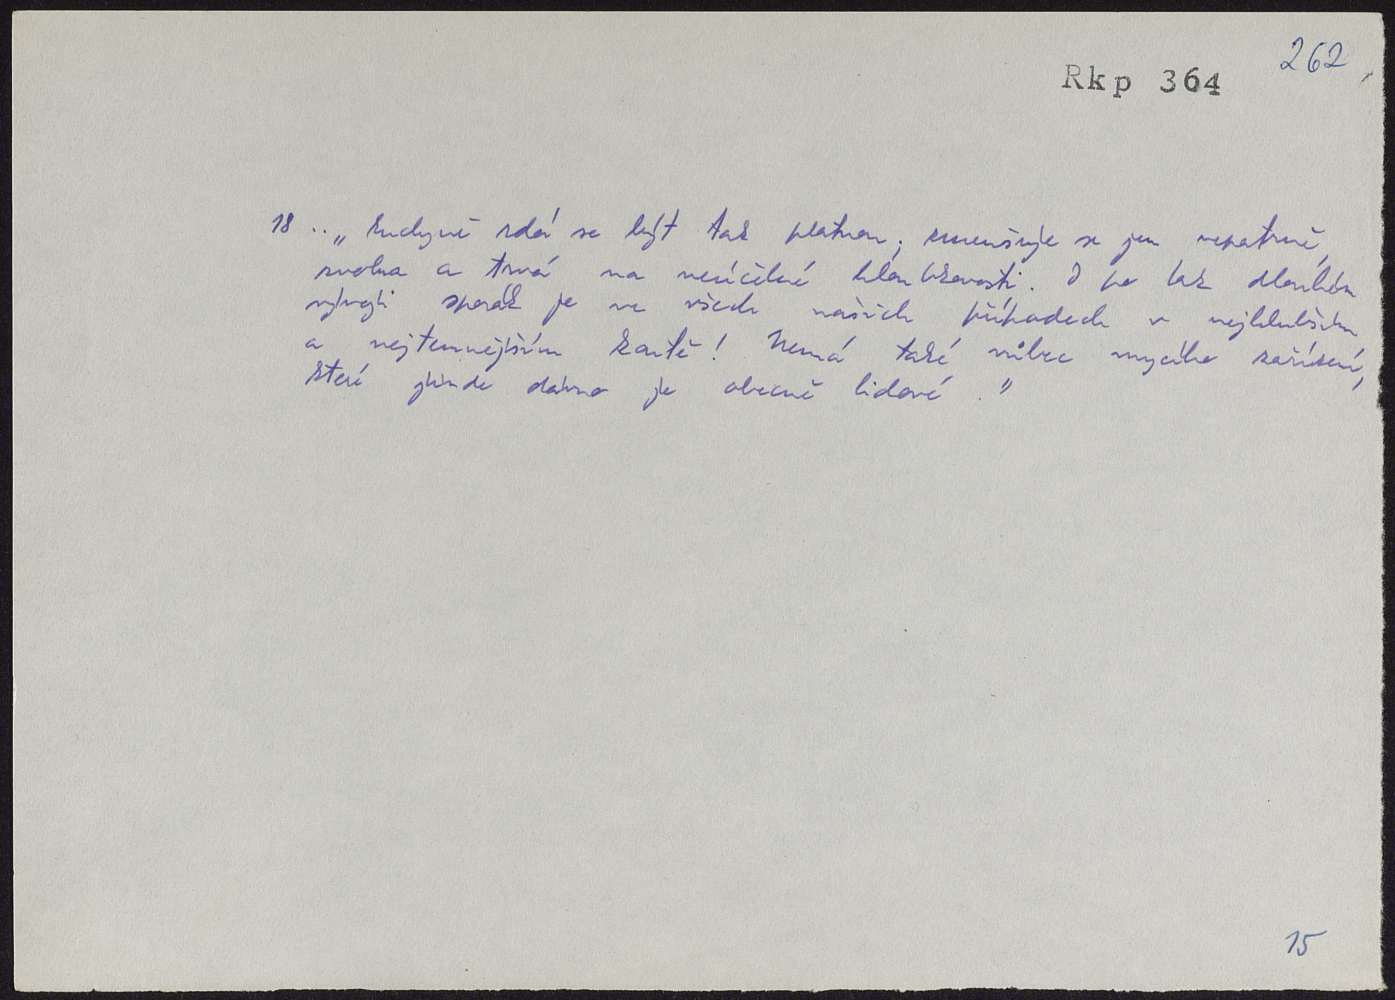 262
Rkp 364
18 .. „Kuchyně zdá se být tak platnou; zmenšuje se jen nepatrně,
zvolna a trvá na neúčelné hloubkovosti. I po tak dlouhém
vývoji sporák je ve všech našich případech v nejhlubším
a nejtemnějším koutě! Nemá také vůbec mycího zařízení,
které jinde dávno je obecně lidové."
15